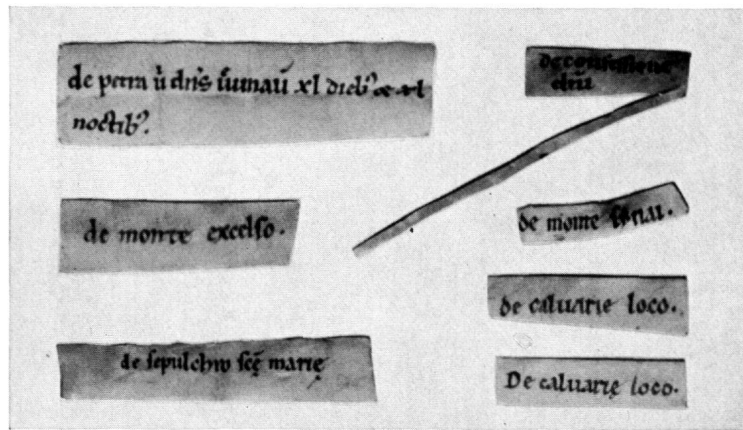 de petra ū dn̄s ieiunaū xl dieb; & xl
noctib;.
de monte excelso.
de sepulchro scę̄ marię
de confessione
de monte synai.
de caluarie loco.
De caluarię loco.